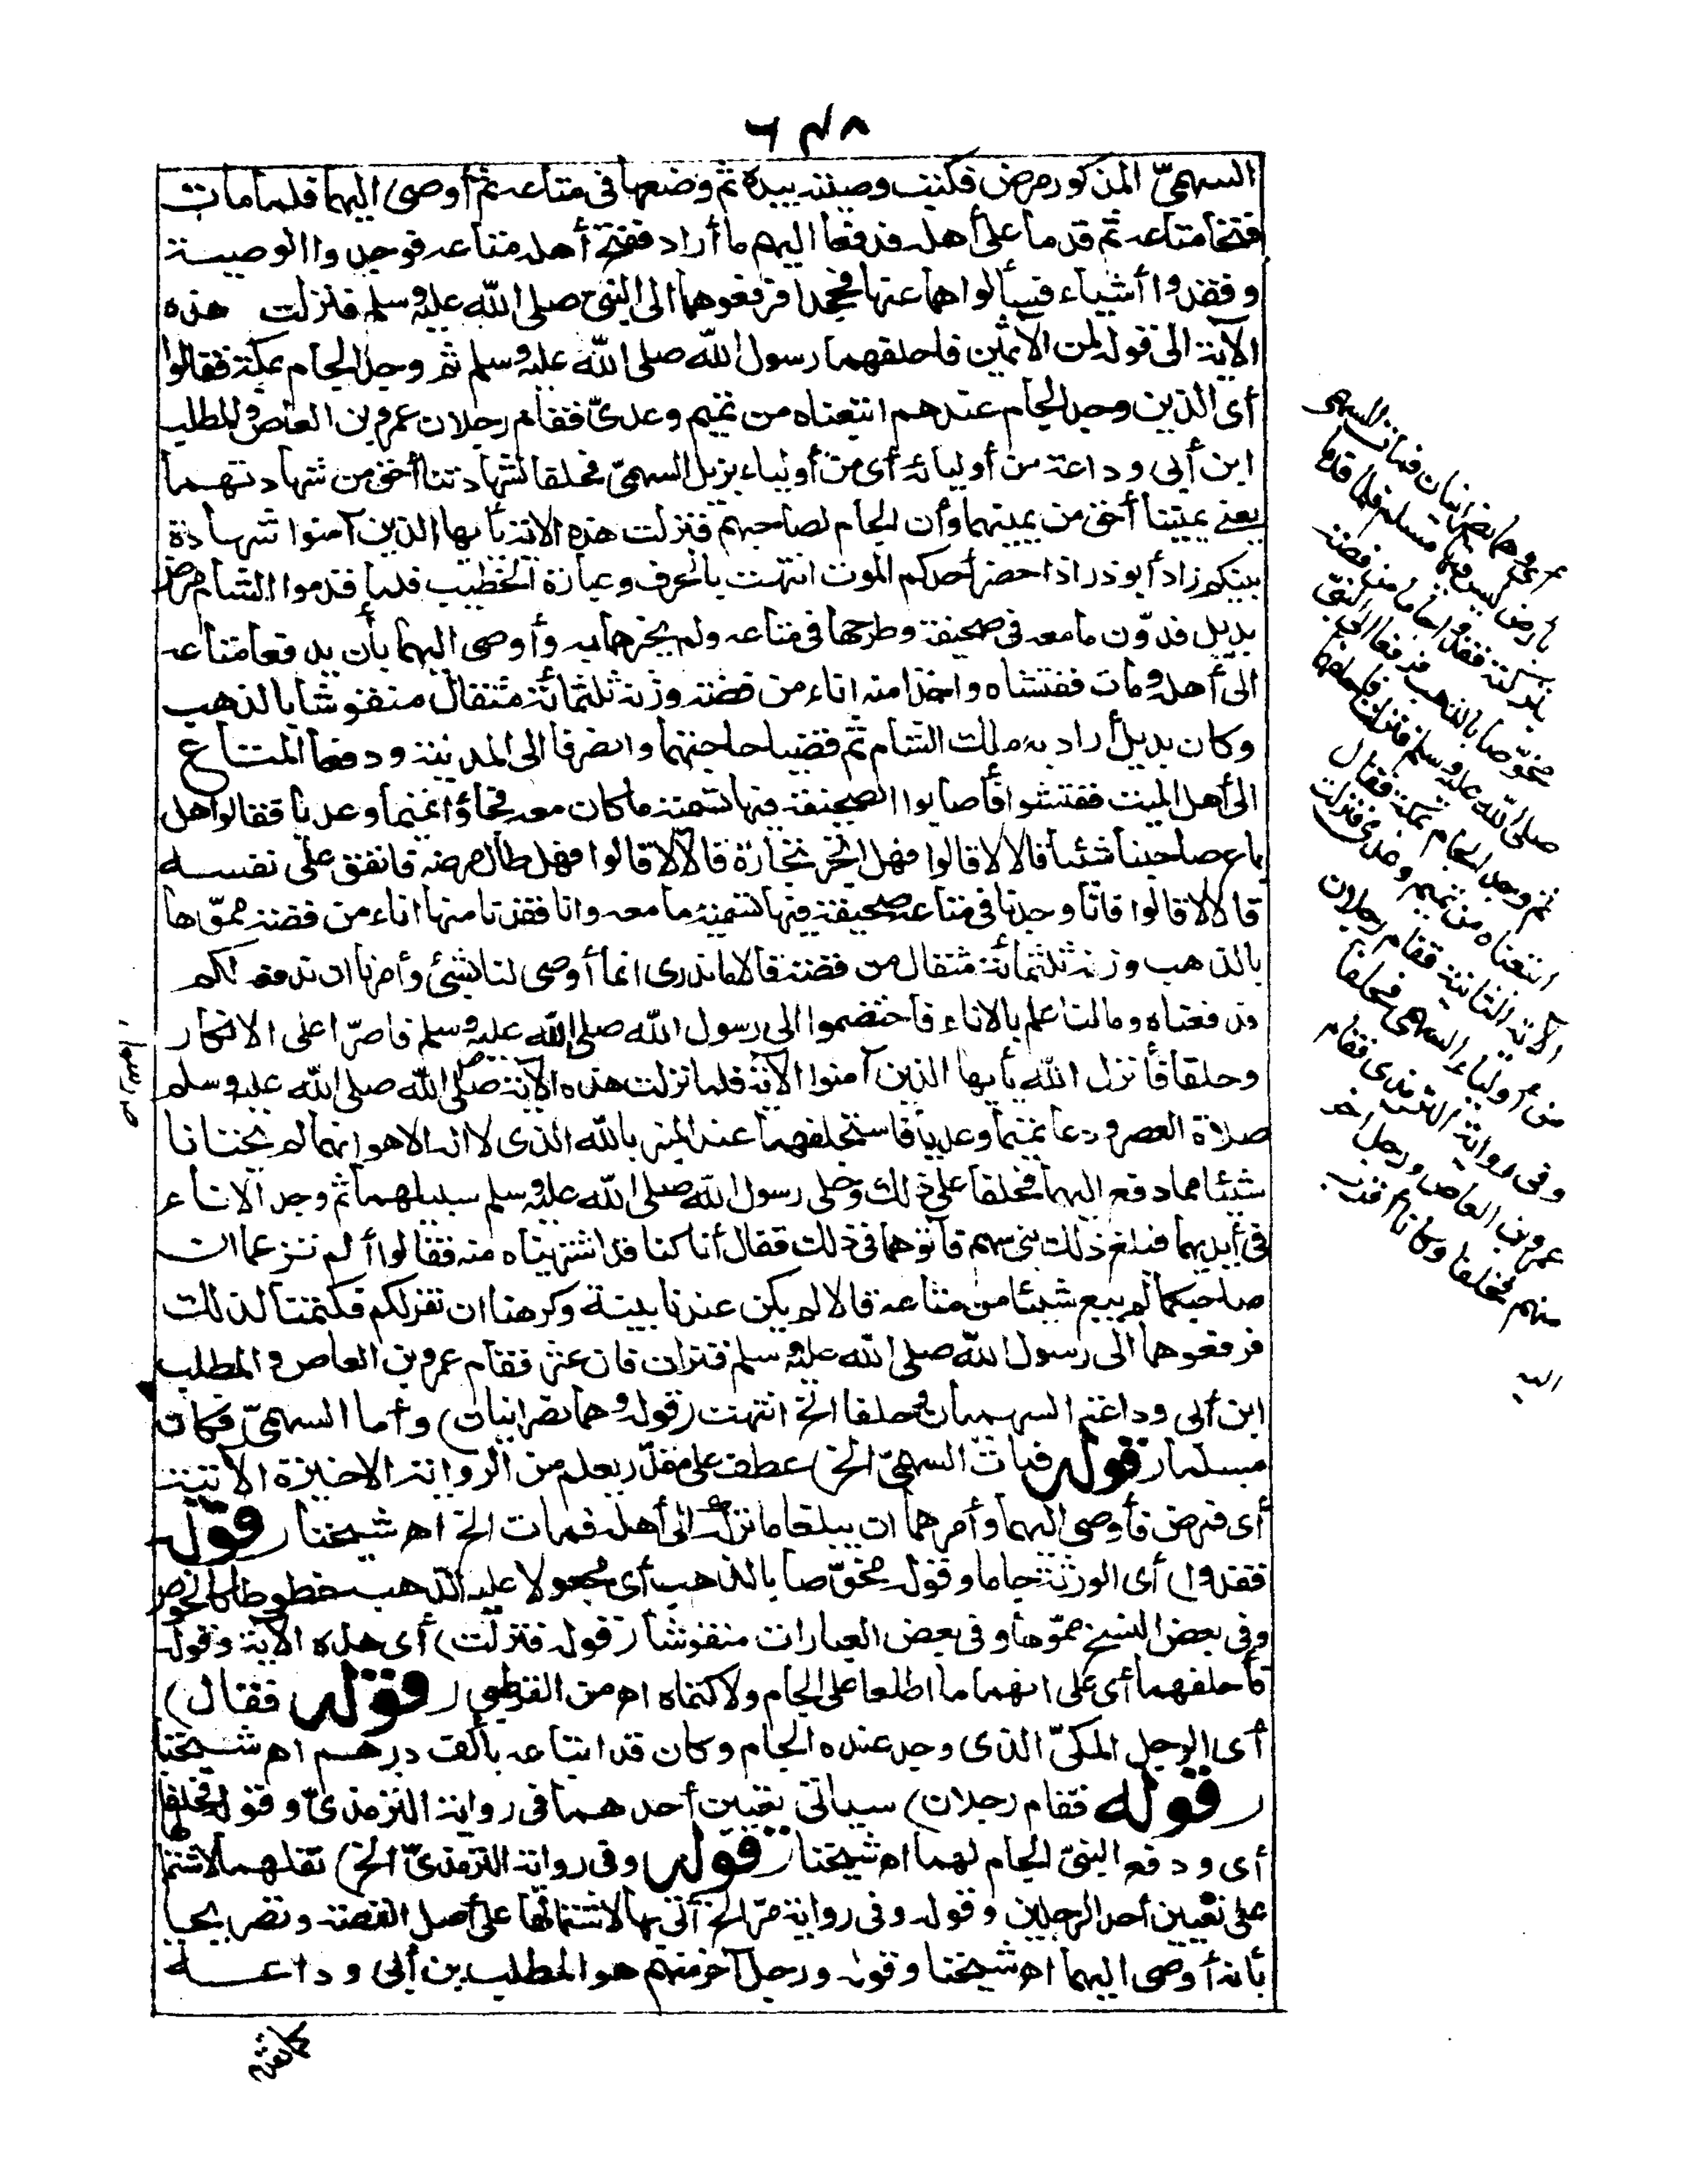 ٦٣٨
السهميّ المذكور مرض فكتب وصيته بيده ثم وضعها فى متاعه ثم أوصى اليهما فلما مات
فتحا متاعه ثم قدما على أهله فدفعا اليهم ما أراد ففتح أهله متاعه فوجدوا الوصية
وفقدوا أشياء فسألوا هما عنها فجحدا فرفعوهما الى النبيّ صلى الله عليه وسلم فنزلت هذه
الآية الى قوله لمن الآثمين فاحلفهما رسول الله صلى الله عليه وسلم ثم وجد الجام بمكة فقالوا
أى الذين وجد الجام عندهم ابتعناه من تميم وعدىّ فقام رجلان عمرو بن العاص والمطلب
ابن أبى وداعة من أوليائه أى من أولياء بزيل السهميّ فحلفا لشهادتنا أحق من شهادتهما
يعنى يميننا أحق من يمينهما وأن الجام لصاحبهم فنزلت هذه الآية يأيها الذين آمنوا شهادة
بينكم زاد أبوذر اذا حضر أحدكم الموت انتهت بالحرف وعبارة الخطيب فلما قدموا الشام مرض
بديل فدوّن ما معه فى صحيفة وطرحها فى متاعه ولم يخبرهما به وأوصى اليهما بأن يدفعا متاعه
الى أهله ومات ففتشاه وأخذا منه اناء من فضة وزنه ثلثمائة مثقال منقوشا بالذهب
وكان بديل أراد به ملك الشام ثم قضيا حاجتهما وانصرفا الى المدينة ودفعا المتاع
الى أهل الميت ففتشوا فأصابوا الصحيفة فيها تسمية ما كان معه فجاؤا تميما وعديا فقالوا هل
باع صاحبنا شيئا قالا لا قالوا فهل اتجر تجارة قالا لا قالوا فهل طال مرضه فانفق على نفسه
قالا لا قالوا فانا وجدنا فى متاعه صحيفة فيها تسمية ما معه وانا فقدنا منها اناء من فضة مموّها
بالذهب وزنه ثلثمائة مثقال من فضة قالا ما ندرى انما أوصى لنا بشئ وأمرنا ان ندفعه لكم
فدفعناه وما لنا علم بالاناء فاختصموا الى رسول الله صلى الله عليه وسلم فاصرّا على الانكار
وحلفا فأنزل الله يأيها الذين آمنوا الآية فلما نزلت هذه الآية صلى الله صلى الله عليه وسلم
صلاة العصر ودعا تميما وعديا فاستحلفهما عند المنبر بالله الذى لا اله الا هو انهما لم يختانا
شيئا مما دفع اليهما فحلفا على ذلك وخلى رسول الله صلى الله عليه وسلم سبيلهما ثم وجد الاناء
فى أيديهما فبلغ ذلك بنى سهم فأتوهما فى ذلك فقال أنا كنا قد اشتريناه منه فقالوا ألم تزعما ان
صاحبكما لم يبع شيئا من متاعه قالا لم يكن عندنا بينة وكرهنا ان نقر لكم فكتمنا لذلك
فرفعوهما الى رسول الله صلى الله عليه وسلم فنزلت فان عثر فقام عمرو بن العاص والمطلب
ابن أبى وداعة السهميان وحلفا الخ انتهت (قوله وهما نصرانيان) وأما السهميّ فكان
مسلما (قوله فمات السهميّ الخ) عطف على مقدّر يعلم من الرواية الاخيرة الآتية
أى فمرض فأوصى اليهما وأمرهما ان يبلغا ما ترك الى أهله فمات الخ اه شيخنا (قوله
فقدوا) أى الورثة جاما وقوله مخوّصا بالذهب أى مجعولا عليه الذهب خطوطا كالخوص
وفى بعض النسخ مموّها وفى بعض العبارات منقوشا (قوله فنزلت) أى هذه الآية وقوله
فأحلفهما أى على انهما ما اطلعا على الجام ولا كتماه اه من القرطبى (قوله فقال)
أى الرجل المكىّ الذى وجد عنده الجام وكان قد ابتاعه بألف درهم اه شيخنا
(قوله فقام رجلان) سيأتى تعيين أحدهما فى رواية الترمذىّ وقوله فحلفا
أى ودفع النبيّ الجام لهما اه شيخنا (قوله وفى رواية الترمذىّ الخ) نقلهما لاشتمالها
على تعيين أحد الرجلين وقوله وفى رواية مرّ الخ أتى بها لاشتمالها على أصل القصة وتصريحها
بأنه أوصى اليهما اه شيخنا وقوله ورجل آخر منهم هو المطلب بن أبى وداعه
كما تقدم
وهما نصرانيان فمات السهمى
بأرض ليس فيها مسلم فلما قدما
بتركته فقدوا جاما من فضة
مخوّصا بالذهب فرفعا الى النبيّ
صلى الله عليه وسلم فنزلت فاحلفهما
ثم وجد الجام بمكة فقال
ابتعناه من تميم وعدى فنزلت
الآية الثانية فقام رجلان
من أولياء السهمى فحلفا
وفى رواية الترمذى فقام
عمرو بن العاص ورجل آخر
منهم فحلفا وكانا أقرب
اليه
رسول